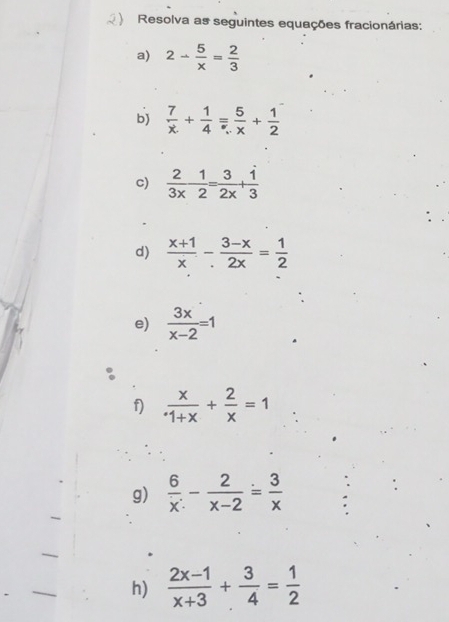 2) Resolva as seguintes equações fracionárias:
a) 2 - 5/x = 2/3
b) 7/x + 1/4 = 5/x + 1/2
c) 2/3x 1/2=3/2x+1/3
d) x+1/x - 3-x/2x = 1/2
e) 3x/x-2=1
f) x/1+x + 2/x = 1
g) 6/x - 2/x-2 = 3/x
h) 2x-1/x+3 + 3/4 = 1/2